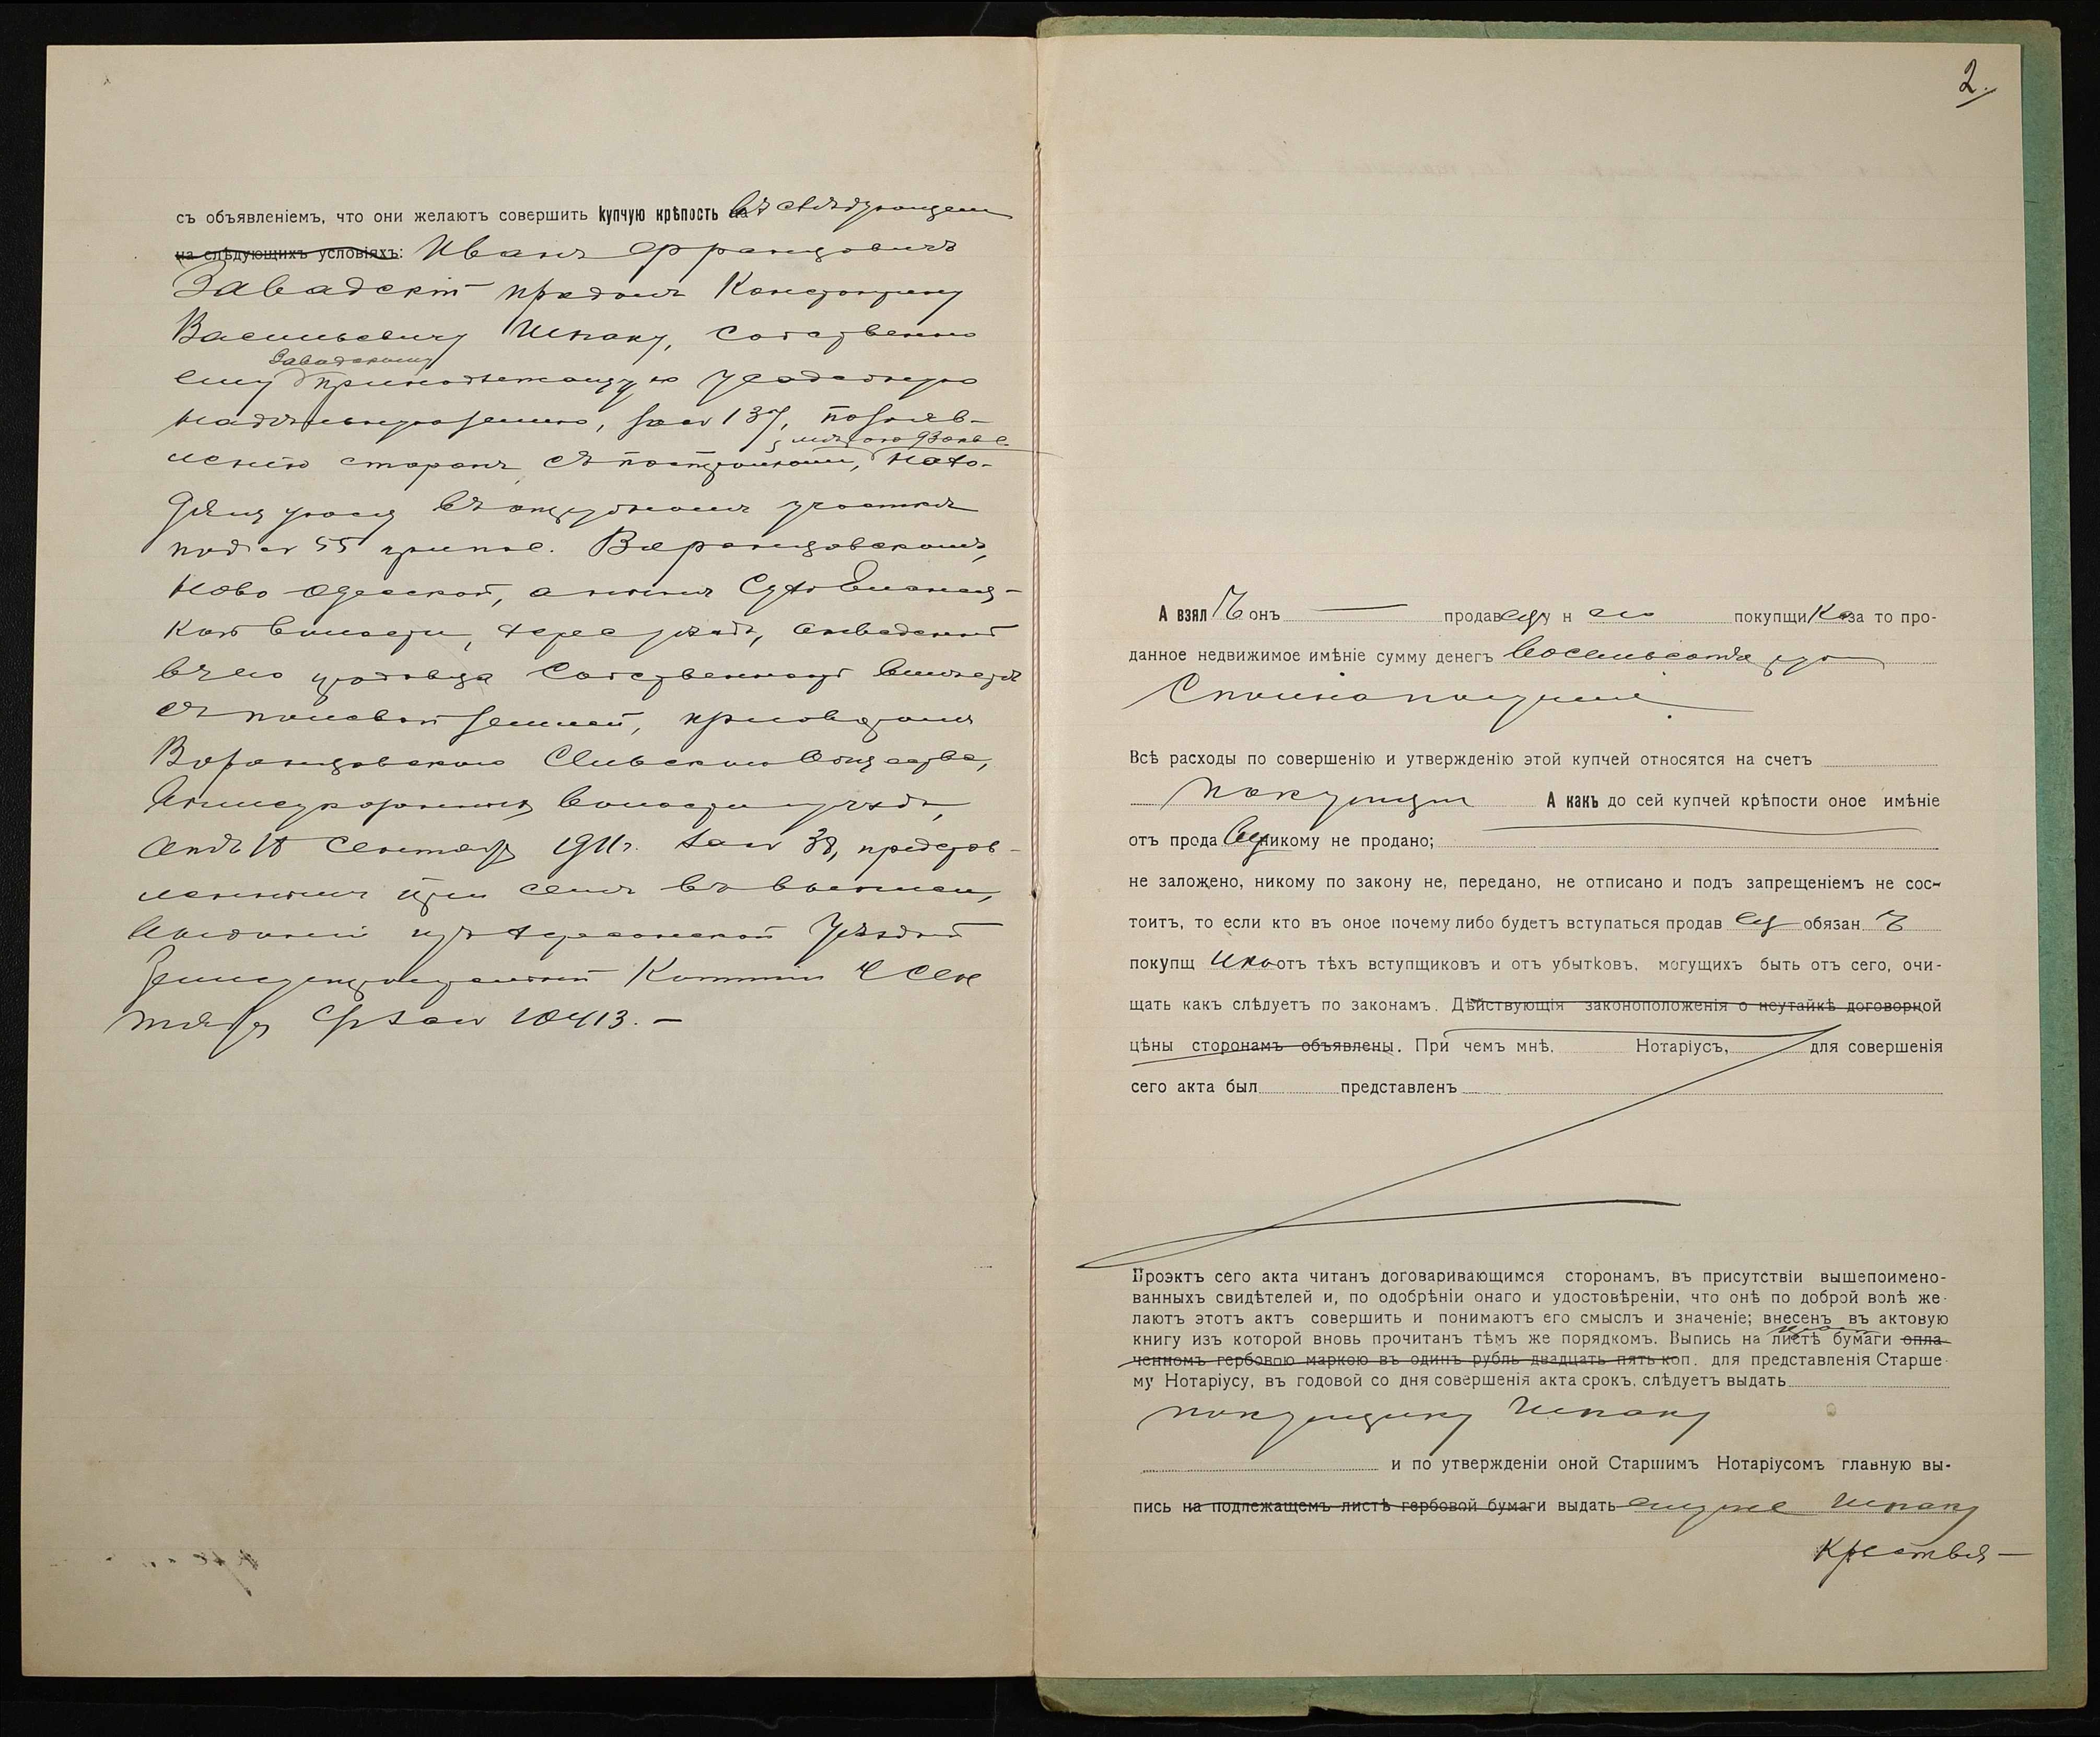 съ объявленіемъ, что они желаютъ совершить купчую крѣпость на въ слѣдующемъ
на слѣдующихъ условіяхъ: Иванъ Францовичъ
Завадскій продалъ Константину
Васильевичу Шпаку, собственно
Завадскому
ему принадлежащую усадебную
надѣльную землю, за № 137, по заяв-
мѣрою
ленію сторонъ, съ постройками, нахо-
дящуюся въ участкѣ
подъ № 55 при пос. Воронцовскомъ,
Ново Одесской, а нынѣ Сухо Еланец-
кой волости, Херс. уѣзда, отведенной
въ его продавца собственность вмѣстѣ
съ полевой землей, приговоромъ
Воронцовскаго Сельскаго Общества,
волости и уѣзда,
отъ 18 Сентября 1911 г. за № 38, представ-
леннымъ при семъ въ выписи,
выданной изъ Херсонской Уѣздной
Землеустроительной Коммиссіи 4 Сен
тября с/г за № 10413. —
2.
А взялъ онъ — продавецъ у него покупщика за то про-
данное недвижимое имѣніе сумму денегъ восемьсотъ руб
Сполна получилъ.
Всѣ расходы по совершенію и утвержденію этой купчей относятся на счетъ
покупщика А какъ до сей купчей крѣпости оное имѣніе
отъ продавца никому не продано;
не заложено, никому по закону не, передано, не отписано и подъ запрещеніемъ не сос-
тоитъ, то если кто въ оное почему либо будетъ вступаться продавецъ обязанъ
покупщика отъ тѣхъ вступщиковъ и отъ убытковъ, могущихъ быть отъ сего, очи-
щать какъ слѣдуетъ по законамъ. Дѣйствующія законоположенія о неутайкѣ договорной
цѣны сторонамъ объявлены. При чемъ мнѣ, Нотаріусъ, для совершенія
сего акта былъ представленъ
Проэктъ сего акта читанъ договаривающимся сторонамъ, въ присутствіи вышепоимено-
ванныхъ свидѣтелей и, по одобрѣніи онаго и удостовѣреніи, что онѣ по доброй волѣ же-
лаютъ этотъ актъ совершить и понимаютъ его смыслъ и значеніе; внесенъ въ актовую
книгу изъ которой вновь прочитанъ тѣмъ же порядкомъ. Выпись на листѣ бумаги опла-
ченномъ гербовою маркою въ одинъ рубль двадцать пять коп. для представленія Старше-
му Нотаріусу, въ годовой со дня совершенія акта срокъ, слѣдуетъ выдать
покупщику Шпаку
и по утвержденіи оной Старшимъ Нотаріусомъ главную вы-
пись на подлежащемъ листѣ гербовой бумаги выдать ему же Шпаку
Крестья—